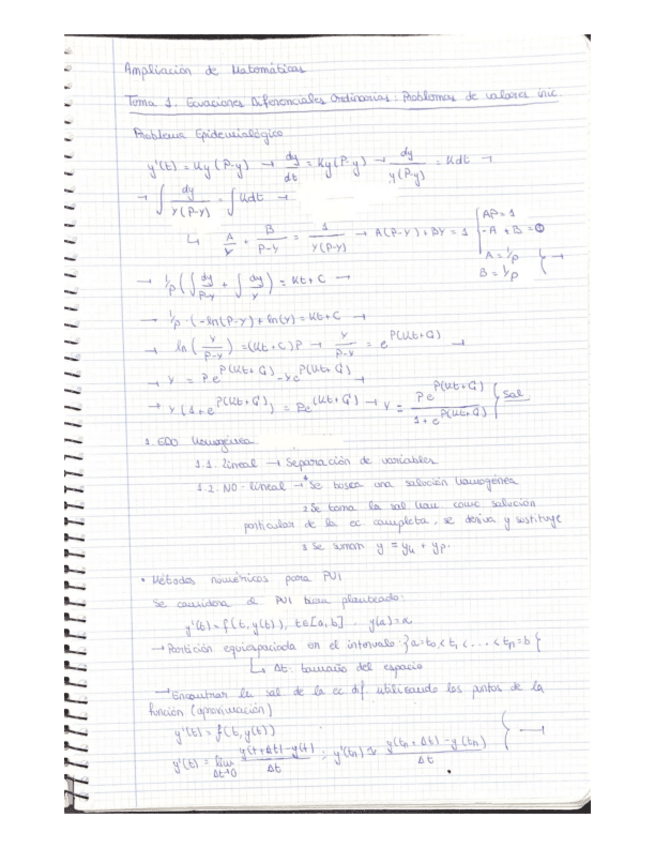 Ampliación de Matemáticas
Tema 1. Ecuaciones Diferenciales Ordinarias: Problemas de valores inic.
Problema Epidemiológico
y'(t) = Ky (P-y) → dy/dt = Ky(P-y) → dy/y(P-y) = Kdt →
→ ∫ dy/y(P-y) = ∫ Kdt →
↳ A/y + B/P-y = 1/y(P-y) → A(P-y)+By = 1 { AP = 1
-A + B = 0
A = 1/P
B = 1/P } →
→ 1/P (∫ dy/P-y + ∫ dy/y) = Kt + C →
→ 1/P · (-ln(P-y) + ln(y)) = Kt + C →
→ ln(y/P-y) = (Kt + C) P → y/P-y = e^P(Kt+C) →
→ y = Pe^P(Kt+C) - ye^P(Kt+C) →
→ y (1+e^P(Kt+C)) = Pe^(Kt+C) → y = Pe^P(Kt+C)/1+e^P(Kt+C) } Sol
1. EDO Homogénea
1.1. lineal → Separación de variables
1.2. NO-lineal → 1 Se busca una solución homogénea
2 Se toma la sol hom como solución
particular de la ec completa, se deriva y sustituye
3 Se suman y = yh + yp.
• Métodos numéricos para PVI
Se considera el PVI bien planteado:
y'(t) = f(t, y(t)), t∈[a, b] y(a) = α
→ Partición equiespaciada en el intervalo: {a = t0 < t1 < ... < tn = b}
↳ Δt: tamaño del espacio
→ Encontrar la sol de la ec dif utilizando los puntos de la
función (aproximación)
y'(t) = f(t, y(t))
y'(t) = lim Δt→0 y(t+Δt)-y(t)/Δt ; y'(tn) ≈ y(tn+Δt)-y(tn)/Δt } →